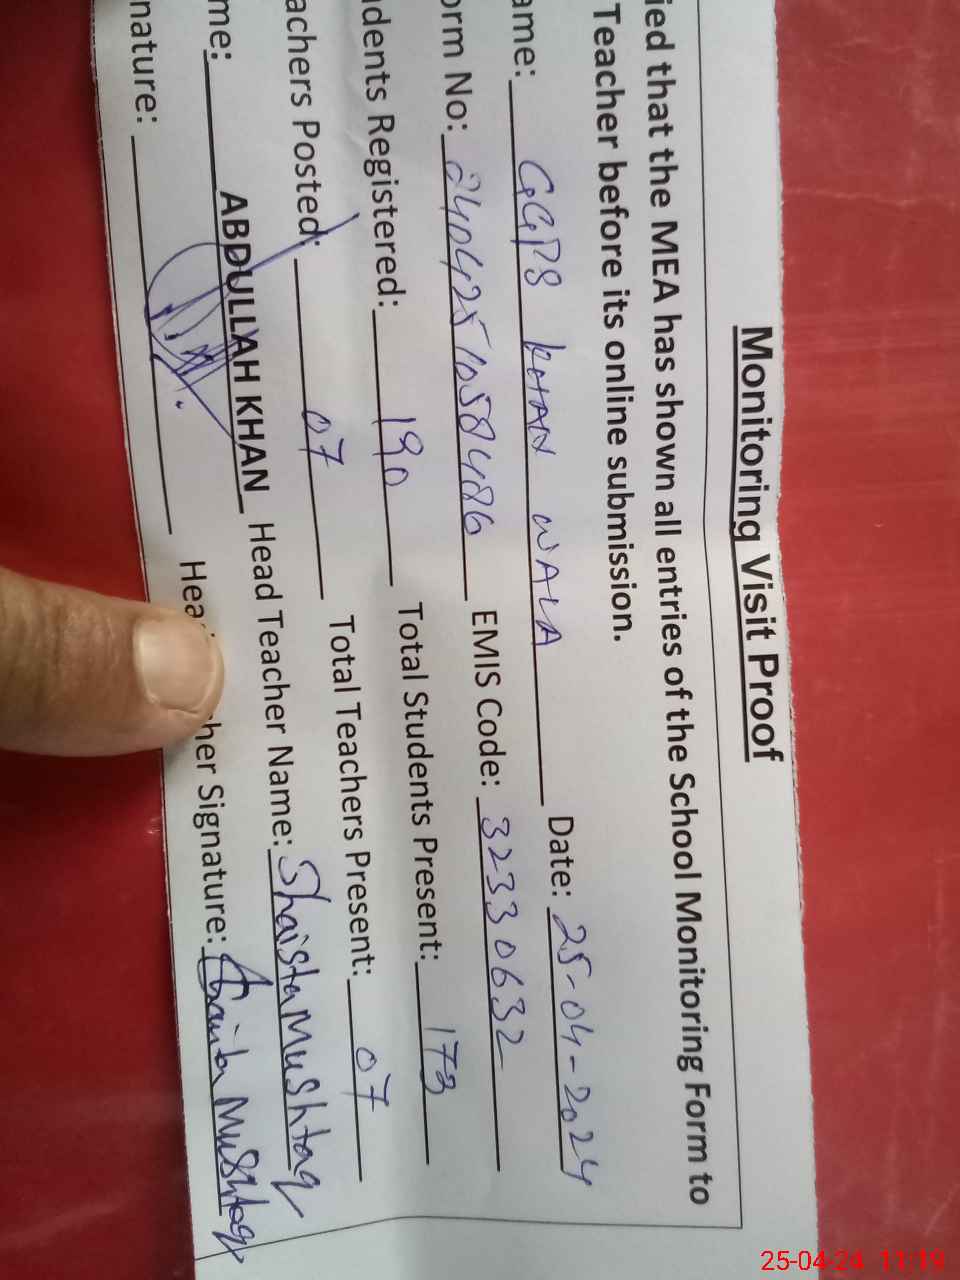 Monitoring Visit Proof
ied that the MEA has shown all entries of the School Monitoring Form to
Teacher before its online submission.
ame: GGPS KHAN WALA Date: 25-04-2024
orm No: 2404251058486 EMIS Code: 32330632
dents Registered: 190 Total Students Present: 173
achers Posted: 07 Total Teachers Present: 07
me: ABDULLAH KHAN Head Teacher Name: Shaista Mushtaq
nature: Hea her Signature: Shaista Mushtaq
25-04-24 11:19